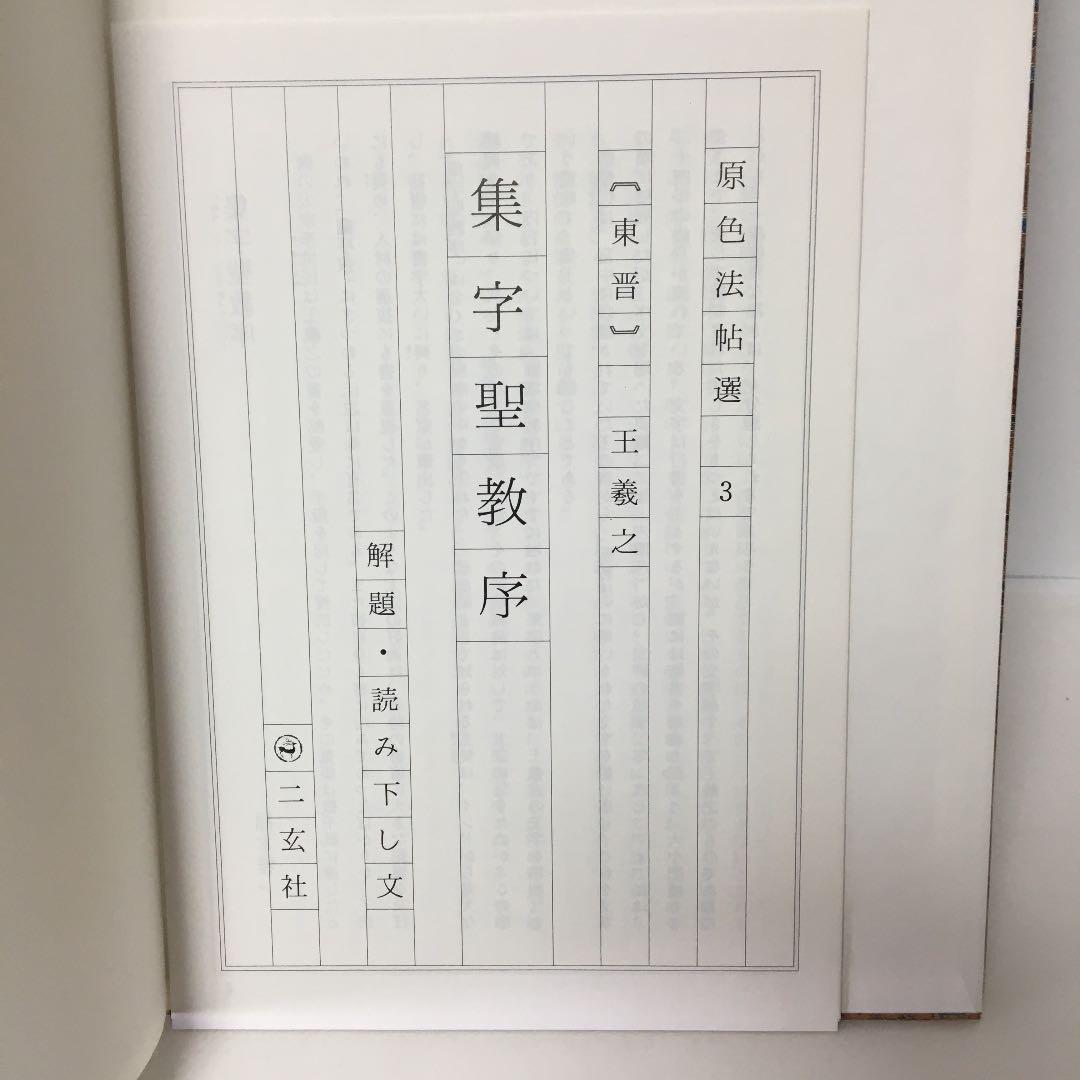 原色法帖選 3
〘東晋〙 王羲之
集字聖教序
解題・読み下し文
二玄社